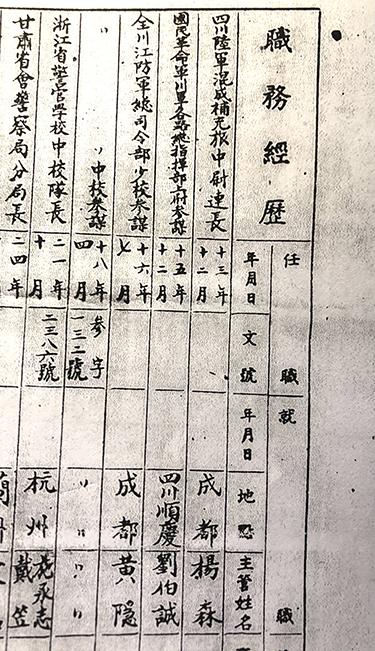 職務經歷
任職
年月日
文號
就職
年月日
地點
主管姓名
四川陸軍混成補充旅中尉連長
十三年
十二月
成都
楊森
國民革命軍川軍各路總指揮部上尉參謀
十五年
十二月
四川順慶
劉伯誠
全川江防軍總司令部少校參謀
十六年
七月
成都
黃隱
〃 〃中校參謀
十八年
四月
參字
一三二號
〃 〃
〃 〃
浙江省警官學校中校隊長
二一年
十月
二三八六號
杭州
永志
戴笠
甘肅省會警察局分局長
二四年